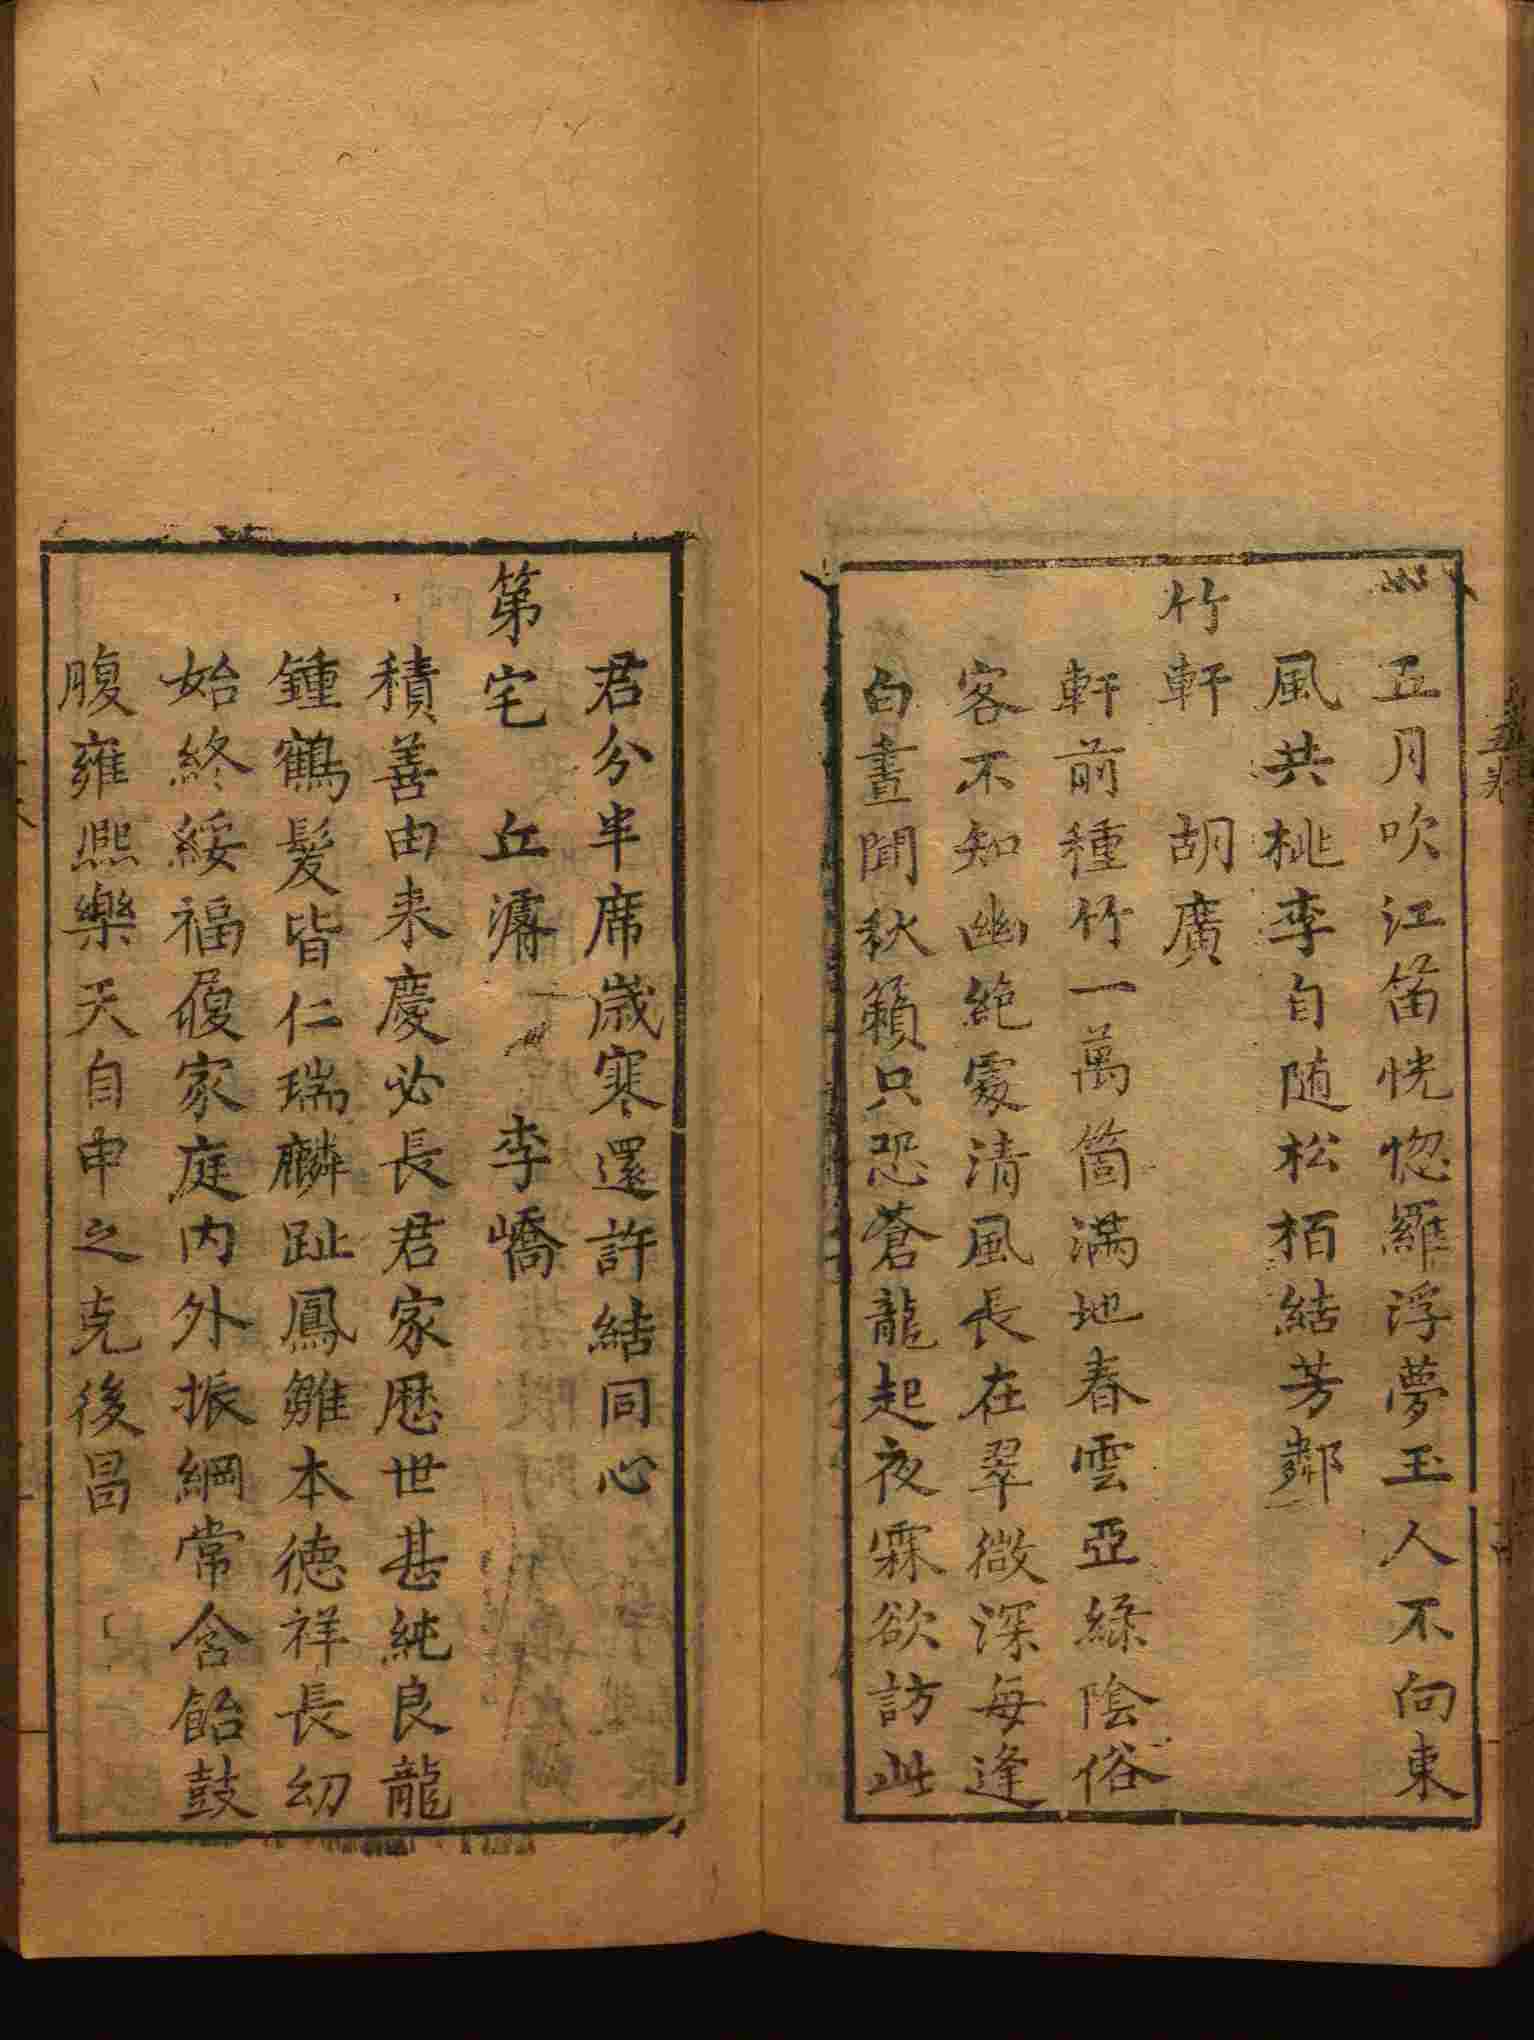 五月吹江笛恍惚羅浮夢玉人不向東
風共桃李自随松栢結芳鄰
竹軒　胡廣
軒前種竹一萬箇满地春雲亞綠陰俗
客不知幽絶處清風長在翠微深每逢
白晝聞秋籟只恐蒼龍起夜霖欲訪此
君分半席歲寒還許結同心
第宅　丘濬　李嶠
積善由来慶必長君家歷世甚純良龍
鍾鶴髮皆仁瑞麟趾鳳雛本德祥長幼
始終綏福履家庭內外振綱常含飴鼓
腹雍熙樂天自申之克後昌